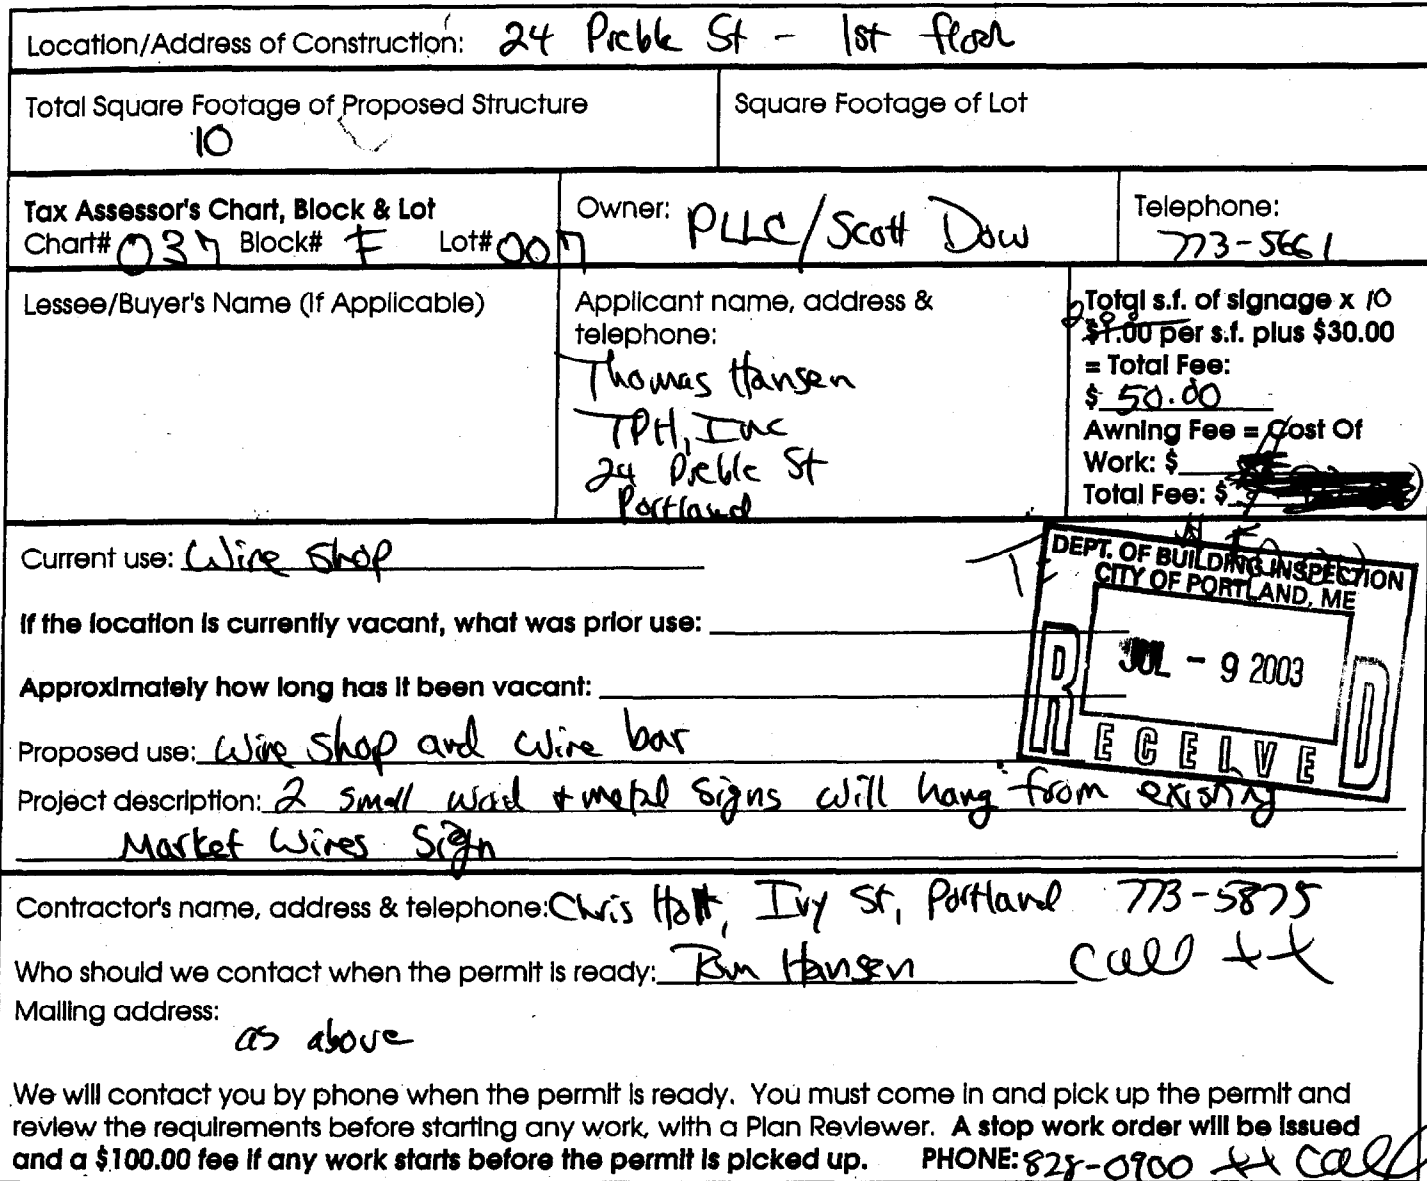 Location/Address of Construction: 24 Preble St - 1st floor
Total Square Footage of Proposed Structure
10
Square Footage of Lot
Tax Assessor's Chart, Block & Lot
Chart# 037 Block# F Lot# 007
Owner: PLLC/Scott Dow
Telephone:
773-5661
Lessee/Buyer's Name (If Applicable)
Applicant name, address &
telephone:
Thomas Hansen
TPH, Inc
24 Preble St
Portland
Total s.f. of signage x 10
$1.00 per s.f. plus $30.00
= Total Fee:
$ 50.00
Awning Fee = Cost Of
Work: $
Total Fee: $
Current use: Wine Shop
If the location is currently vacant, what was prior use:
Approximately how long has it been vacant:
Proposed use: Wine Shop and Wine bar
Project description: 2 small wood + metal signs will hang from existing
Market Wines Sign
DEPT. OF BUILDING INSPECTION
CITY OF PORTLAND, ME
JUL - 9 2003
RECEIVED
Contractor's name, address & telephone: Chris Holt, Ivy St, Portland 773-5875
Who should we contact when the permit is ready: Hansen Call **
Mailing address:
as above
We will contact you by phone when the permit is ready. You must come in and pick up the permit and
review the requirements before starting any work, with a Plan Reviewer. A stop work order will be issued
and a $100.00 fee if any work starts before the permit is picked up. PHONE: 828-0900 ** Call